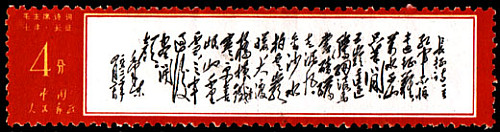 毛主席诗词
七律·长征
4分
中国
人民邮政
长征诗一首
红军不怕
远征难
万水千山
只等闲
五岭逶迤
腾细浪
乌蒙磅礴
走泥丸
金沙水
拍云崖
暖大渡
桥横铁索
寒更喜
岷山千里
雪三军
过后尽
开颜
毛泽东